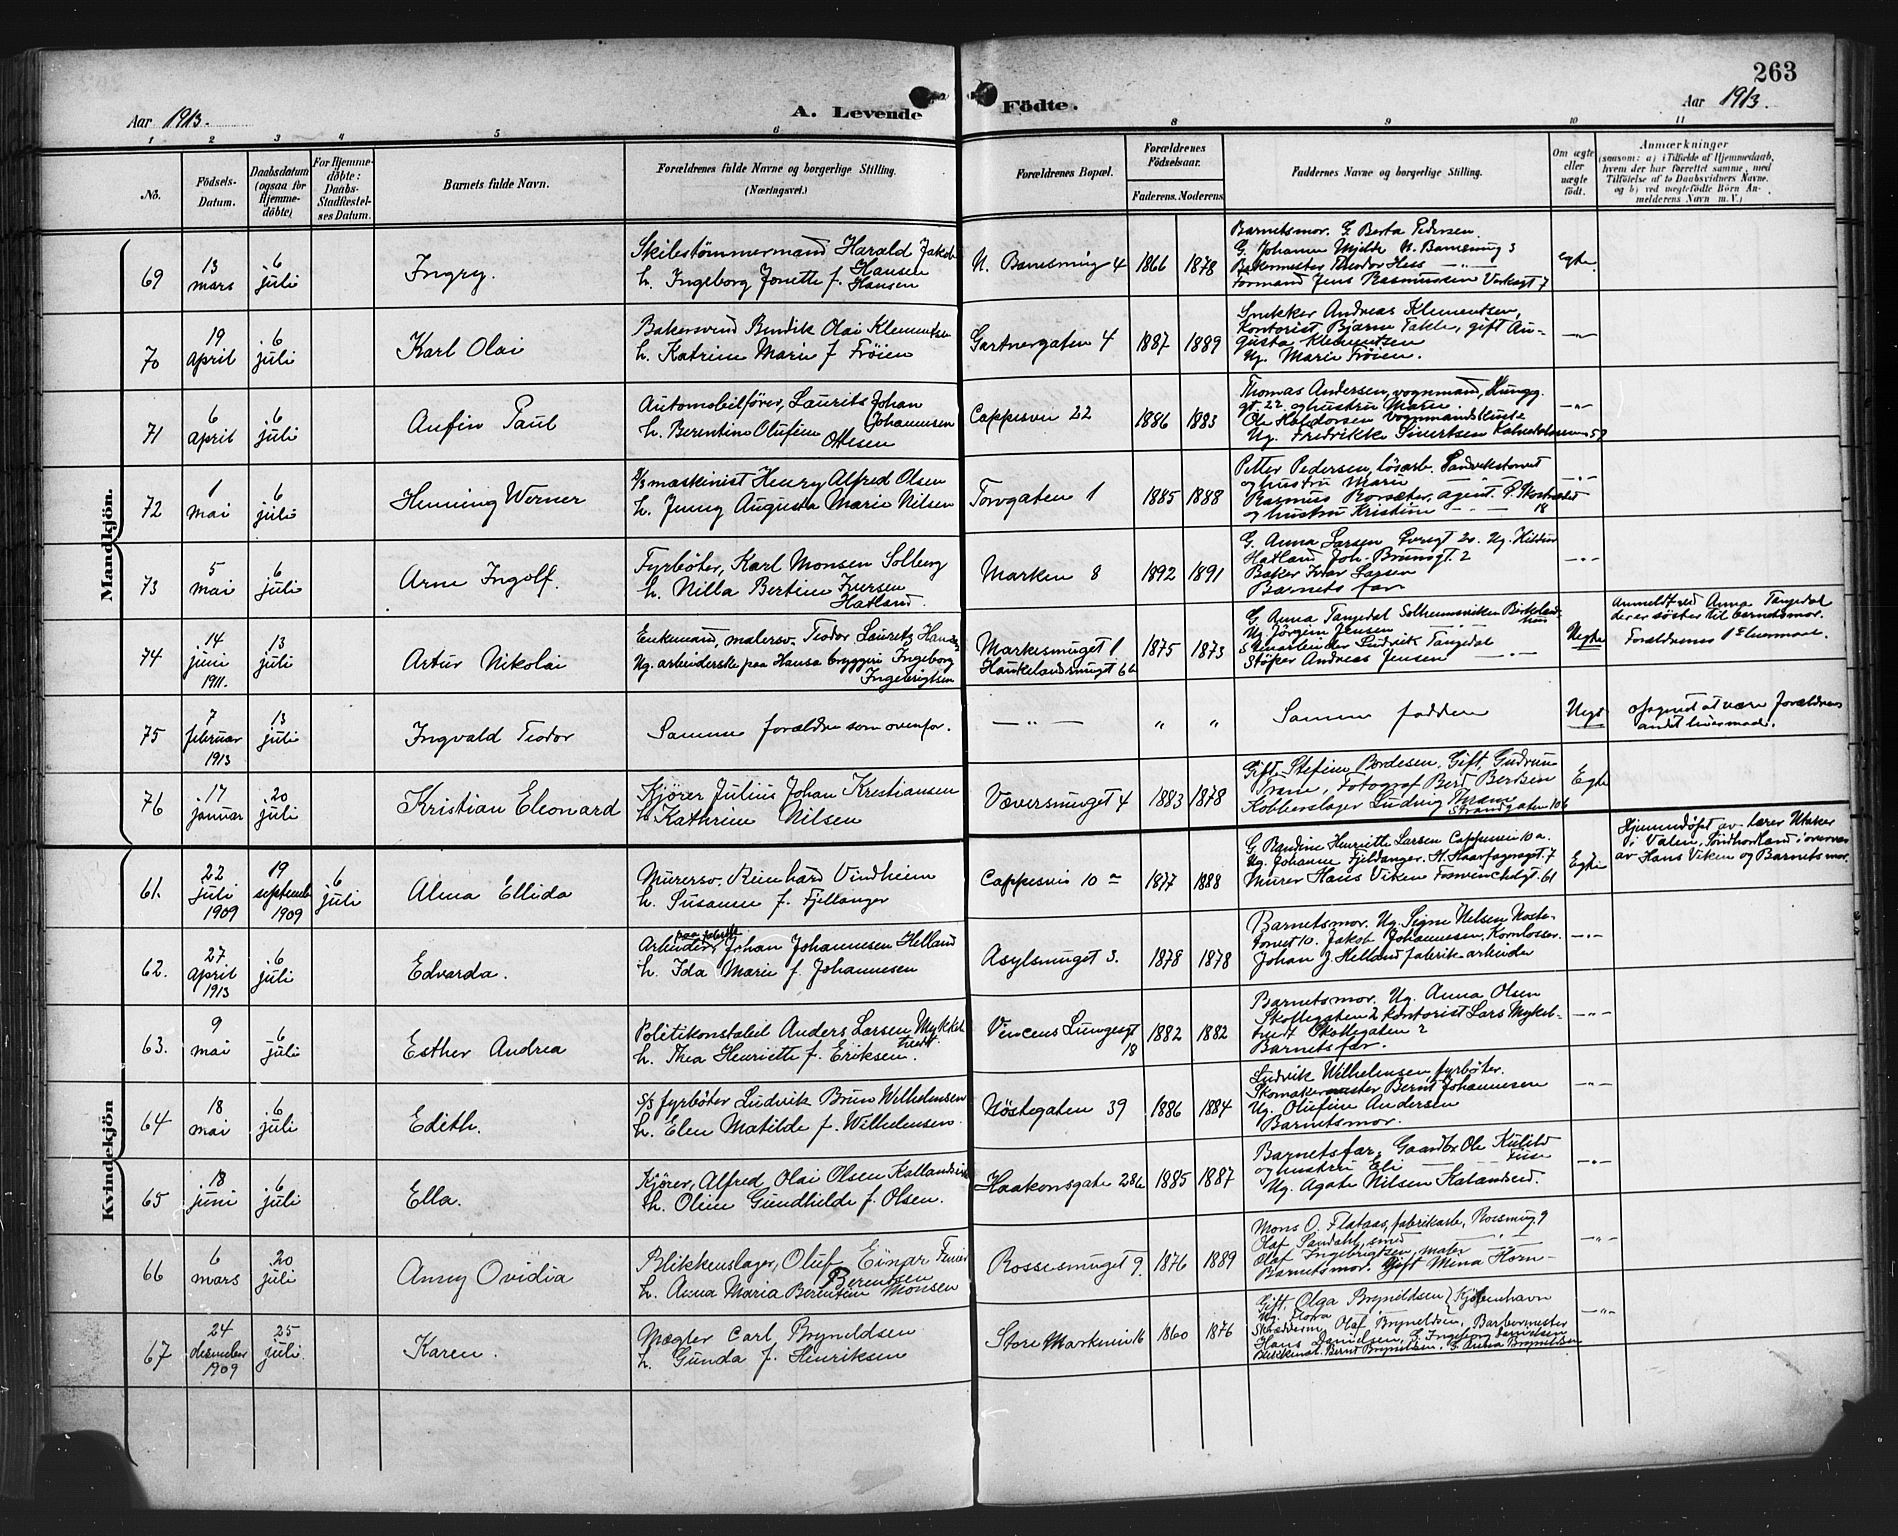 263
Aar 1913.
A. Levende Födte.
Aar 1913.
1 2 3 4 5 6 8 9 10 11
No.
Födsels-Datum.
Daabsdatum (ogsaa for Hjemmedöbte)
For Hjemmedöbte: Daabs-Stadfæstelses Datum.
Barnets fulde Navn.
Forældrenes fulde Navne og borgerlige Stilling.
(Næringsvei.)
Forældrenes Bopæl.
Forældrenes Födselsaar.
Faderens. Moderens.
Faddernes Navne og borgerlige Stilling.
Om ægte eller uægte födt.
Anmærkninger
(saasom: a) i Tilfælde af Hjemmedaab, hvem der har forrettet samme, med Tilföielse af to Daabsvidners Navne, og b) ved uægtefödte Börn Anmelderens Navn m. V.)
Mandkjön.
69
13 mars
6 juli
Ingry.
Skibstømmermand Harald Jakob Hansen
h. Ingeborg Jonette f. Hansen
4
1866 1878
Barnetsmor. G. Berta Pedersen.
G. Johanne Mjelde
Bakermester Teodor Hess
Formand Jens Rasmussen
Egte
70
19 april
6 juli
Karl Olai
Bakersvend Bendik Olai Klementsen
h. Katrine Marie f. Frøien
Gartnergaten 4
1887 1889
Snekker Andreas Klementsen,
Kontorist Bjarne Takle, gift Au-
gusta Klementsen
Ug. Marie Frøien.
—"—
71
6 april
6 juli
Anfin Paul
Automobilfører, Laurits Johan Johannesen
h. Berentine Olufine Ottesen
Cappesvei 22
1886 1883
Thomas Andersen, vognmand,
gt. 22. og hustru Marie.
Ole Halvorsen vognmand
Ug. Fredrikke Sivertsen
—"—
72
1 mai
6 juli
Henning Werner
s/s maskinist Henry Alfred Olsen
h. Jenny Augusta Marie Nilsen
Torvgaten 1
1885 1888
Petter Pedersen, løsarb. Sandvikstorvet
og hustru Marie
Rasmus Rorsæter, agent.
og hustru Kristine 18
—"—
73
5 mai
6 juli
Arne Ingolf.
Fyrbøter, Karl Monsen Solberg
h. Nilla Bertine Iversen Hatland.
Marken 8
1892 1891
G. Anna Larsen
Hatland Joh. Brunsgt. 2
Baker Ivar Larsen
Barnets far
—"—
74
14 juni 1911.
13 juli
Artur Nikolai
Enkemand, malersv. Teodor Laurits Hansen
Ug. arbeiderske paa Hansa bryggeri Ingeborg Ingebrigtsen
Markesmuget 1
Haukelandsmugt 66
1875 1873
G. Anna Tangedal Solheimsviken
Ug. Jørgine Jensen
Ludvik Tangedal
Støper Andreas Jensen —"—
Uegte
Anmeldt ved Anna Tangedal
der er søster til barnets mor.
Forældrenes 1ste leiermaal.
75
7 februar 1913
13 juli
Ingvald Teodor
Samme forældre som ovenfor.
—"—
" "
Samme faddere
Uegt
Opgivet at være forældrenes
andet leiermaal.
76
17 januar
20 juli
Kristian Eleonard
Kjører Julius Johan Kristiansen
h. Kathrine Nilsen
Væversmuget 4
1883 1878
Gift Stefine Bordesen. Gift Gudrun
Trane, Fotograf Bert Bertsen
Kobberslager Ludvig Thrane Strandgaten 106
Egte
Kvindekjön
61.
22 juli 1909
19 september 1909
6 juli
Alma Ellida
Murersv. Reinhard Vindheim
h. Susanne f. Fjellanger
Cappesvei 10a
1877 1888
G. Randine Henriette Larsen Cappesvei 10a.
Ug. Johanne Fjeldanger. H. Haarfagresgt. 7
Murer Hans Viken Fosvinckelgt. 61
Egte
Hjemmedøpt av lærer Utaker
i Valen, Søndhordland i overvær
av Hans Viken og Barnets mor.
62.
27 april 1913
6 juli
Edvarda.
Arbeider paa fabrik Johan Johannesen Helland
h. Ida Marie f. Johannesen
Asylsmuget 3.
1878 1878
Barnetsmor. Ug. Signe Nilsen Nøste-
torvet 10. Jakob Johannesen, Kornlosser.
Johan J. Helland fabrik-arbeider
—"—
63.
9 mai
6 juli
Esther Andrea
Politikonstabel Anders Larsen Mykletvedt
h. Thea Henriette f. Eriksen.
Vincens Lungesgt 18
1882 1882
Barnetsmor. Ug. Anna Olsen
Skottegaten 2 kontorist Lars Myklet-
tvedt Skottegaten 2
Barnets far.
—"—
64
18 mai
6 juli
Edith.
s/s fyrbøter Ludvik Brun Wilhelmsen
h. Elen Matilde f. Wilhelmsen.
Nøstegaten 39
1886 1884
Ludvik Wilhelmsen, fyrbøter.
Skomakermester Bernt Johannesen
Ug. Olufine Andersen
Barnetsmor.
—"—
65
18 juni
6 juli
Ella.
Kjører, Alfred Olai Olsen Kallandsvik
h. Oline Gundhilde f. Olsen.
Haakonsgate 28b
1885 1887
Barnetsfar, Gaardbr. Ole
og hustru Eli
Ug. Agate Nilsen
—"—
66
6 mars
20 juli
Anny Ovidia
Blikkenslager, Oluf Einar Berentsen
h. Anna Maria Berentine Monsen
Rossesmuget 9.
1876 1889
Mons O. Flataas, fabrikarb., Rossmug. 9
Olaf Sandahl, smed
Olaf Ingebrigtsen, maler
Barnetsmor. Gift Mina Horn
—"—
67
24 desember 1909
25 juli
Karen.
Mægler Carl Bryneldsen
h. Gunda f. Henriksen
Store Markevei 16
1860 1876
Gift. Olga Bryneldsen Kjøbenhavn
Ug. Flora
Olaf Bryneldsen, Barbermester
Hans Danielsen, G. Ingeborg Danielsen
Bernt Bryneldsen, G. Anna Bryneldsen
—"—